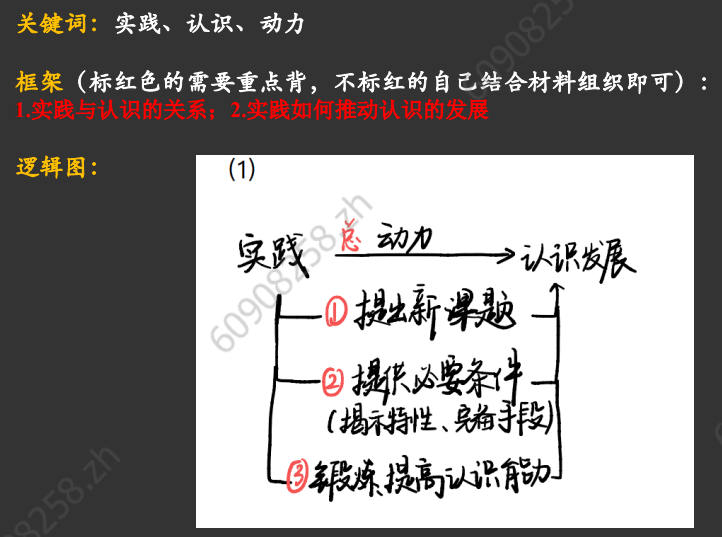 关键词：实践、认识、动力
框架（标红色的需要重点背，不标红的自己结合材料组织即可）：
1.实践与认识的关系；2.实践如何推动认识的发展
逻辑图：
(1)
实践 总 动力 认识发展
① 提出新课题
② 提供必要条件
（揭示特性、完备手段）
③ 锻炼、提高认识能力
60908258.zh
60908258
8258.zh